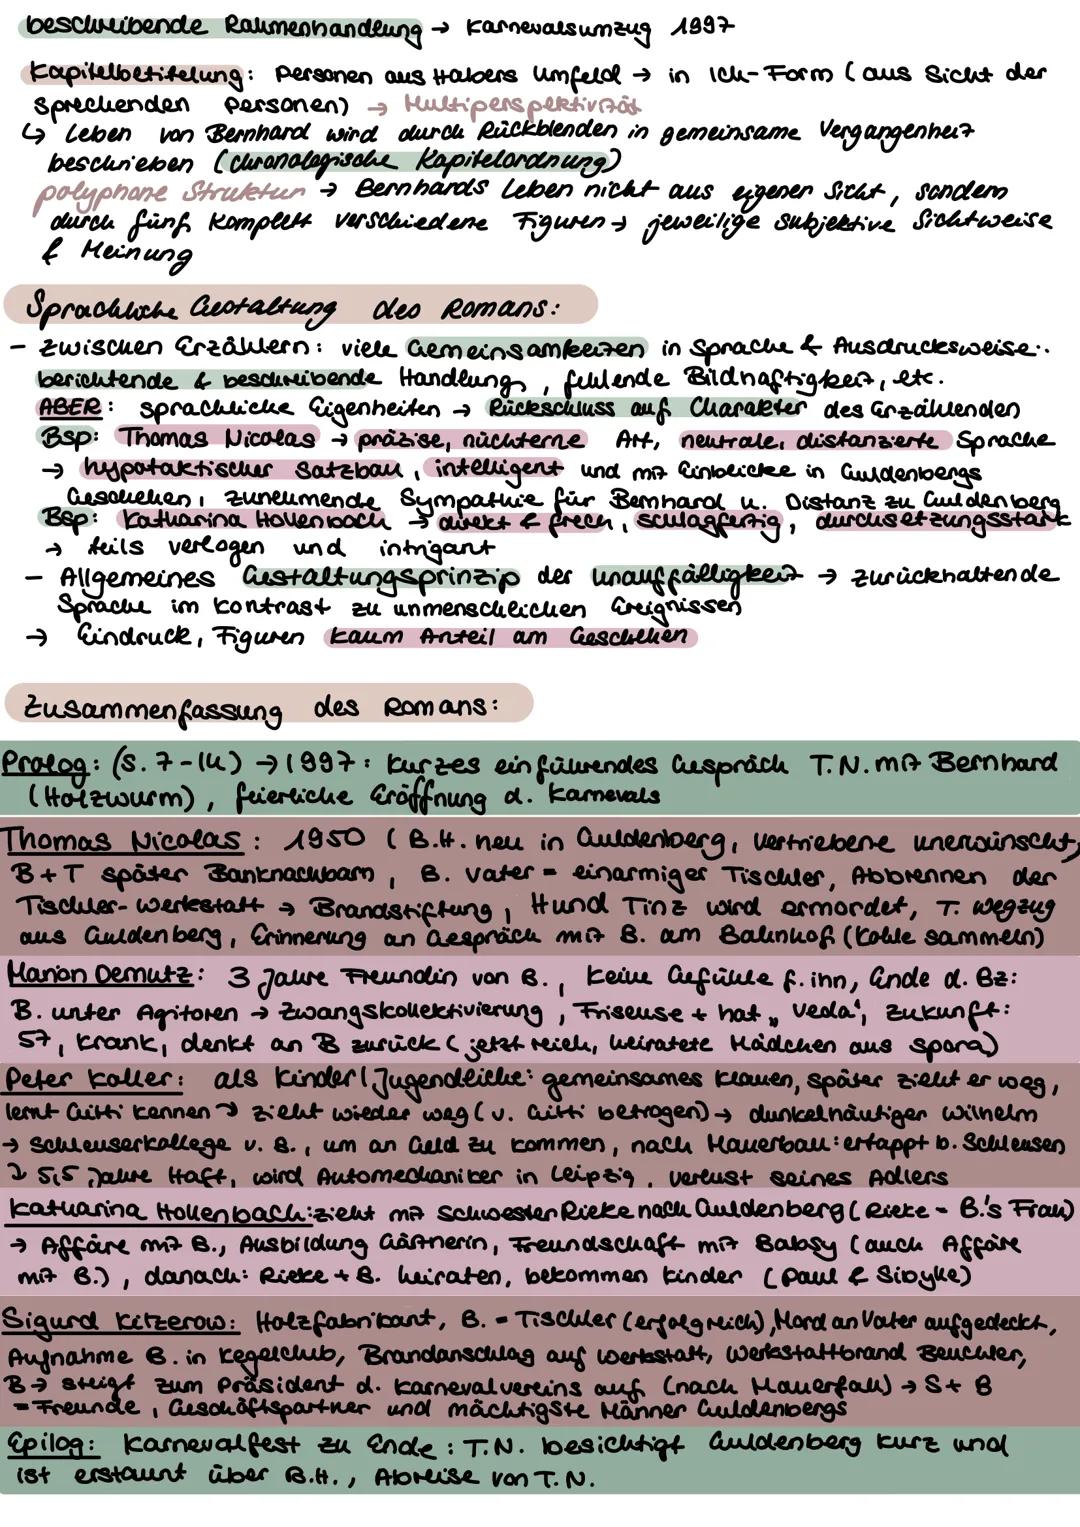 beschreibende Rahmenhandlung → Karnevalsumzug 1997
Kapitelbetitelung: Personen aus Habers Umfeld → in Ich-Form (aus Sicht der
sprechenden Personen) → Multiperspektivität
↳ Leben von Bernhard wird durch Rückblenden in gemeinsame Vergangenheit
beschrieben (chronologische Kapitelordnung)
polyphone Struktur → Bernhards Leben nicht aus eigener Sicht, sondern
durch fünf komplett verschiedene Figuren → jeweilige subjektive Sichtweise
& Meinung
Sprachliche Gestaltung des Romans:
- zwischen Erzählern: viele Gemeinsamkeiten in Sprache & Ausdrucksweise:
berichtende & beschreibende Handlung, fehlende Bildhaftigkeit, etc.
ABER: sprachliche Eigenheiten → Rückschluss auf Charakter des Erzählenden
Bsp: Thomas Nicolas → präzise, nüchterne Art, neutrale, distanzierte Sprache
→ hypotaktischer Satzbau, intelligent und mit Einblicke in Guldenbergs
Geschehen, zunehmende Sympathie für Bernhard u. Distanz zu Guldenberg
Bsp: Katharina Hollenbach → direkt & frech, schlagfertig, durchsetzungsstark
→ teils verlogen und intrigant
- Allgemeines Gestaltungsprinzip der Unauffälligkeit → zurückhaltende
Sprache im Kontrast zu unmenschlichen Ereignissen
→ Eindruck, Figuren kaum Anteil am Geschehen
Zusammenfassung des Romans:
Prolog: (S. 7-14) → 1997: kurzes einführendes Gespräch T.N. mit Bernhard
(Holzwurm), feierliche Eröffnung d. Karnevals
Thomas Nicolas: 1950 (B.H. neu in Guldenberg, Vertriebene unerwünscht,
B+T später Banknachbarn, B. Vater = einarmiger Tischler, Abbrennen der
Tischler-Werkstatt → Brandstiftung, Hund Tinz wird ermordet, T. wegzug
aus Guldenberg, Erinnerung an Gespräch mit B. am Bahnhof (Kohle sammeln)
Marion Demutz: 3 Jahre Freundin von B., keine Gefühle f. ihn, Ende d. Bz:
B. unter Agitoren → Zwangskollektivierung, Friseuse + hat „Veda", Zukunft:
57, krank, denkt an B zurück (jetzt reich, heiratete Mädchen aus Spora)
Peter Koller: als Kinder/Jugendliche: gemeinsames Klauen, später zieht er weg,
lernt Gitti kennen → zieht wieder weg (v. Gitti betrogen) → dunkelhäutiger Wilhelm
→ Schleuserkollege v. B., um an Geld zu kommen, nach Mauerbau: ertappt b. Schleusen
→ 5,5 Jahre Haft, wird Automechaniker in Leipzig, Verlust seines Adlers
Katharina Hollenbach: zieht mit Schwester Rieke nach Guldenberg (Rieke = B.'s Frau)
→ Affäre mit B., Ausbildung Gärtnerin, Freundschaft mit Babsy (auch Affäre
mit B.), danach: Rieke + B. heiraten, bekommen Kinder (Paul & Sibylke)
Sigurd Kitzerow: Holzfabrikant, B. = Tischler (erfolgreich), Mord an Vater aufgedeckt,
Aufnahme B. in Kegelclub, Brandanschlag auf Werkstatt, Werkstattbrand Beuchler,
B → steigt zum Präsident d. Karnevalvereins auf (nach Mauerfall) → S + B
= Freunde, Geschäftspartner und mächtigste Männer Guldenbergs
Epilog: Karnevalfest zu Ende: T.N. besichtigt Guldenberg kurz und
ist erstaunt über B.H., Abreise von T.N.